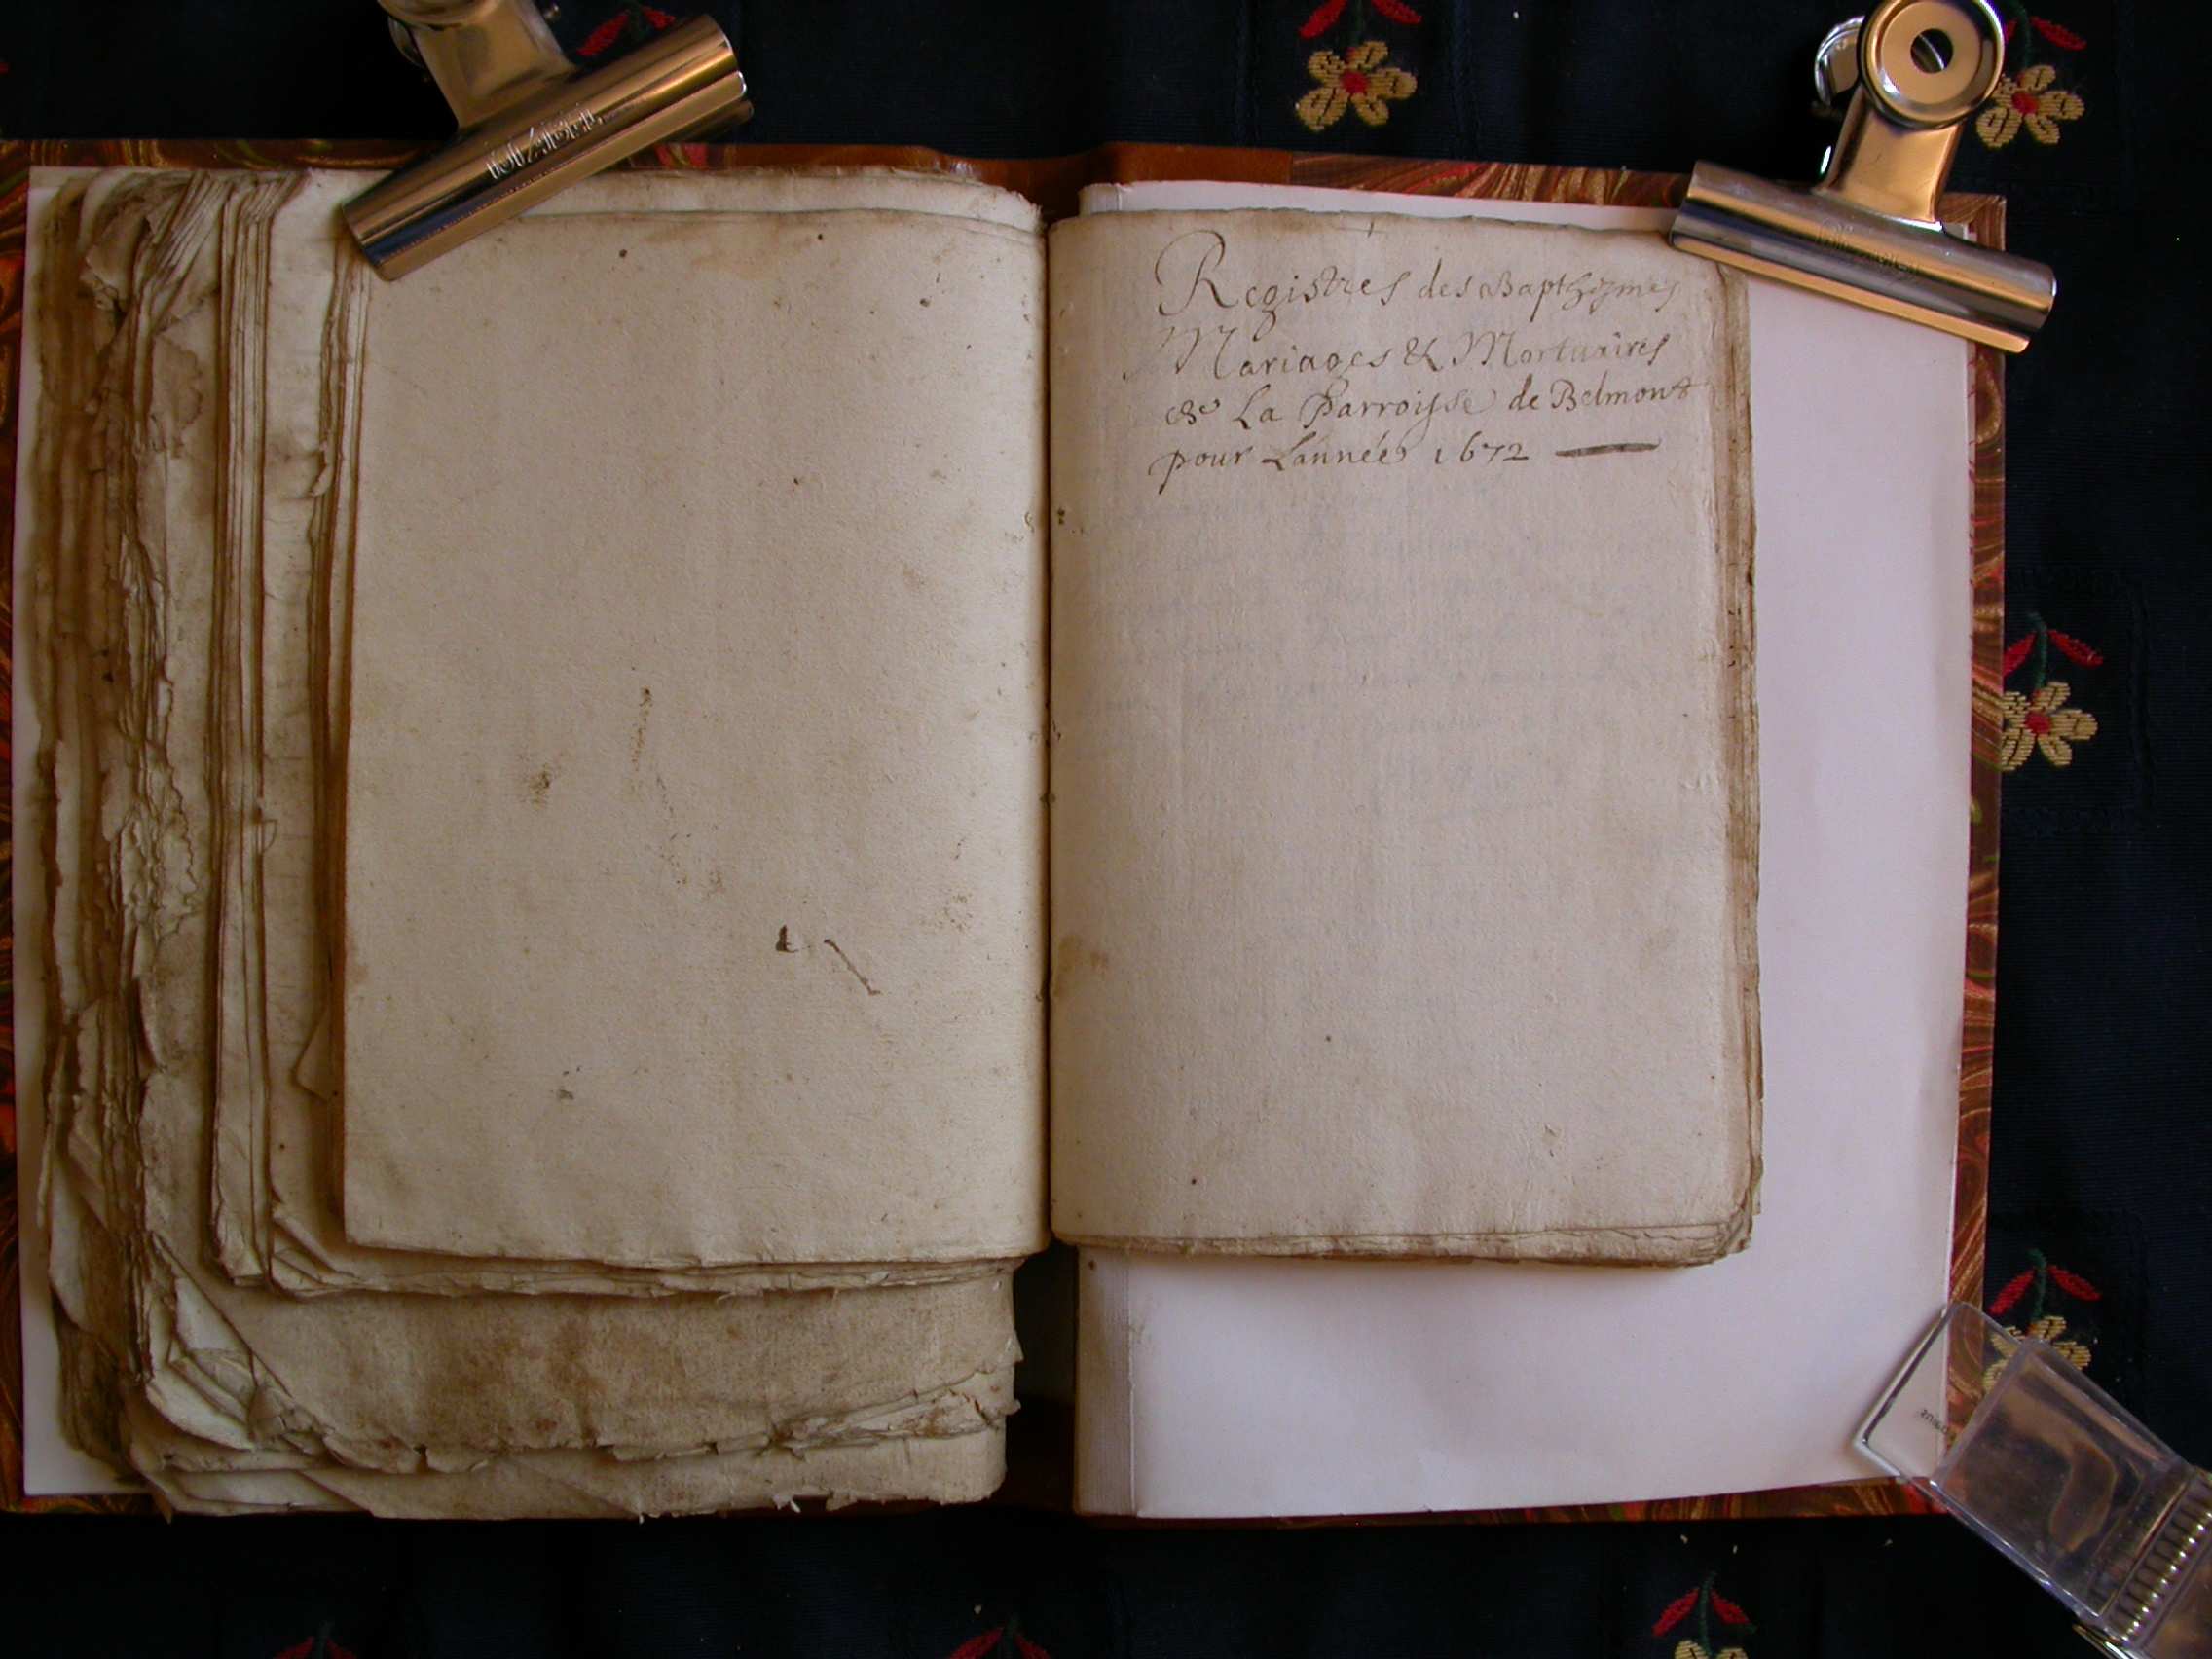 Registres des Baptesmes
Mariages & Mortuaires
de La Parroisse de Belmont
pour Lannée 1672